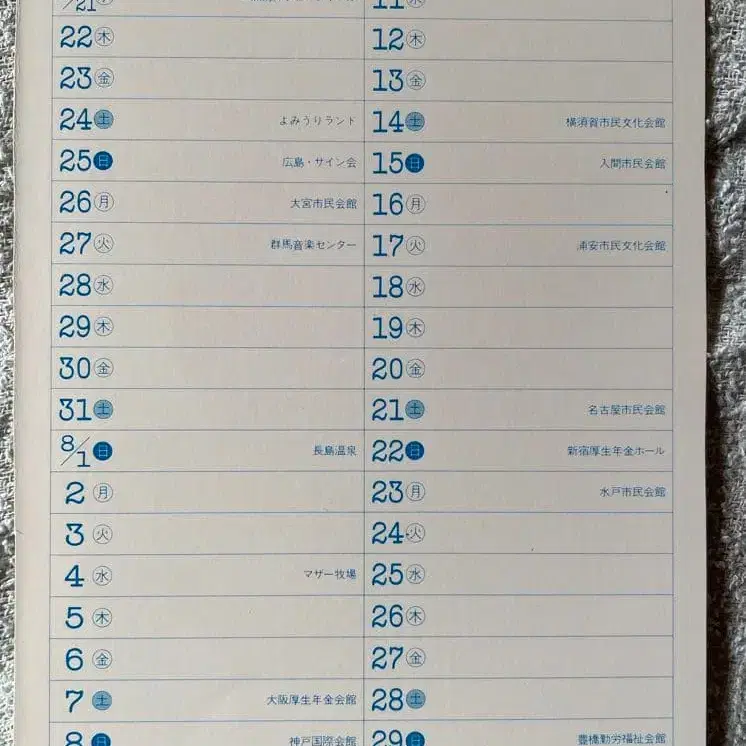 21
22 木
23 金
24 土 よみうりランド
25 日 広島・サイン会
26 月 大宮市民会館
27 火 群馬音楽センター
28 水
29 木
30 金
31 土
8/1 日 長島温泉
2 月
3 火
4 水 マザー牧場
5 木
6 金
7 土 大阪厚生年金会館
8 日 神戸国際会館
11 水
12 木
13 金
14 土 横須賀市民文化会館
15 日 入間市民会館
16 月
17 火 浦安市民文化会館
18 水
19 木
20 金
21 土 名古屋市民会館
22 日 新宿厚生年金ホール
23 月 水戸市民会館
24 火
25 水
26 木
27 金
28 土
29 日 豊橋勤労福祉会館